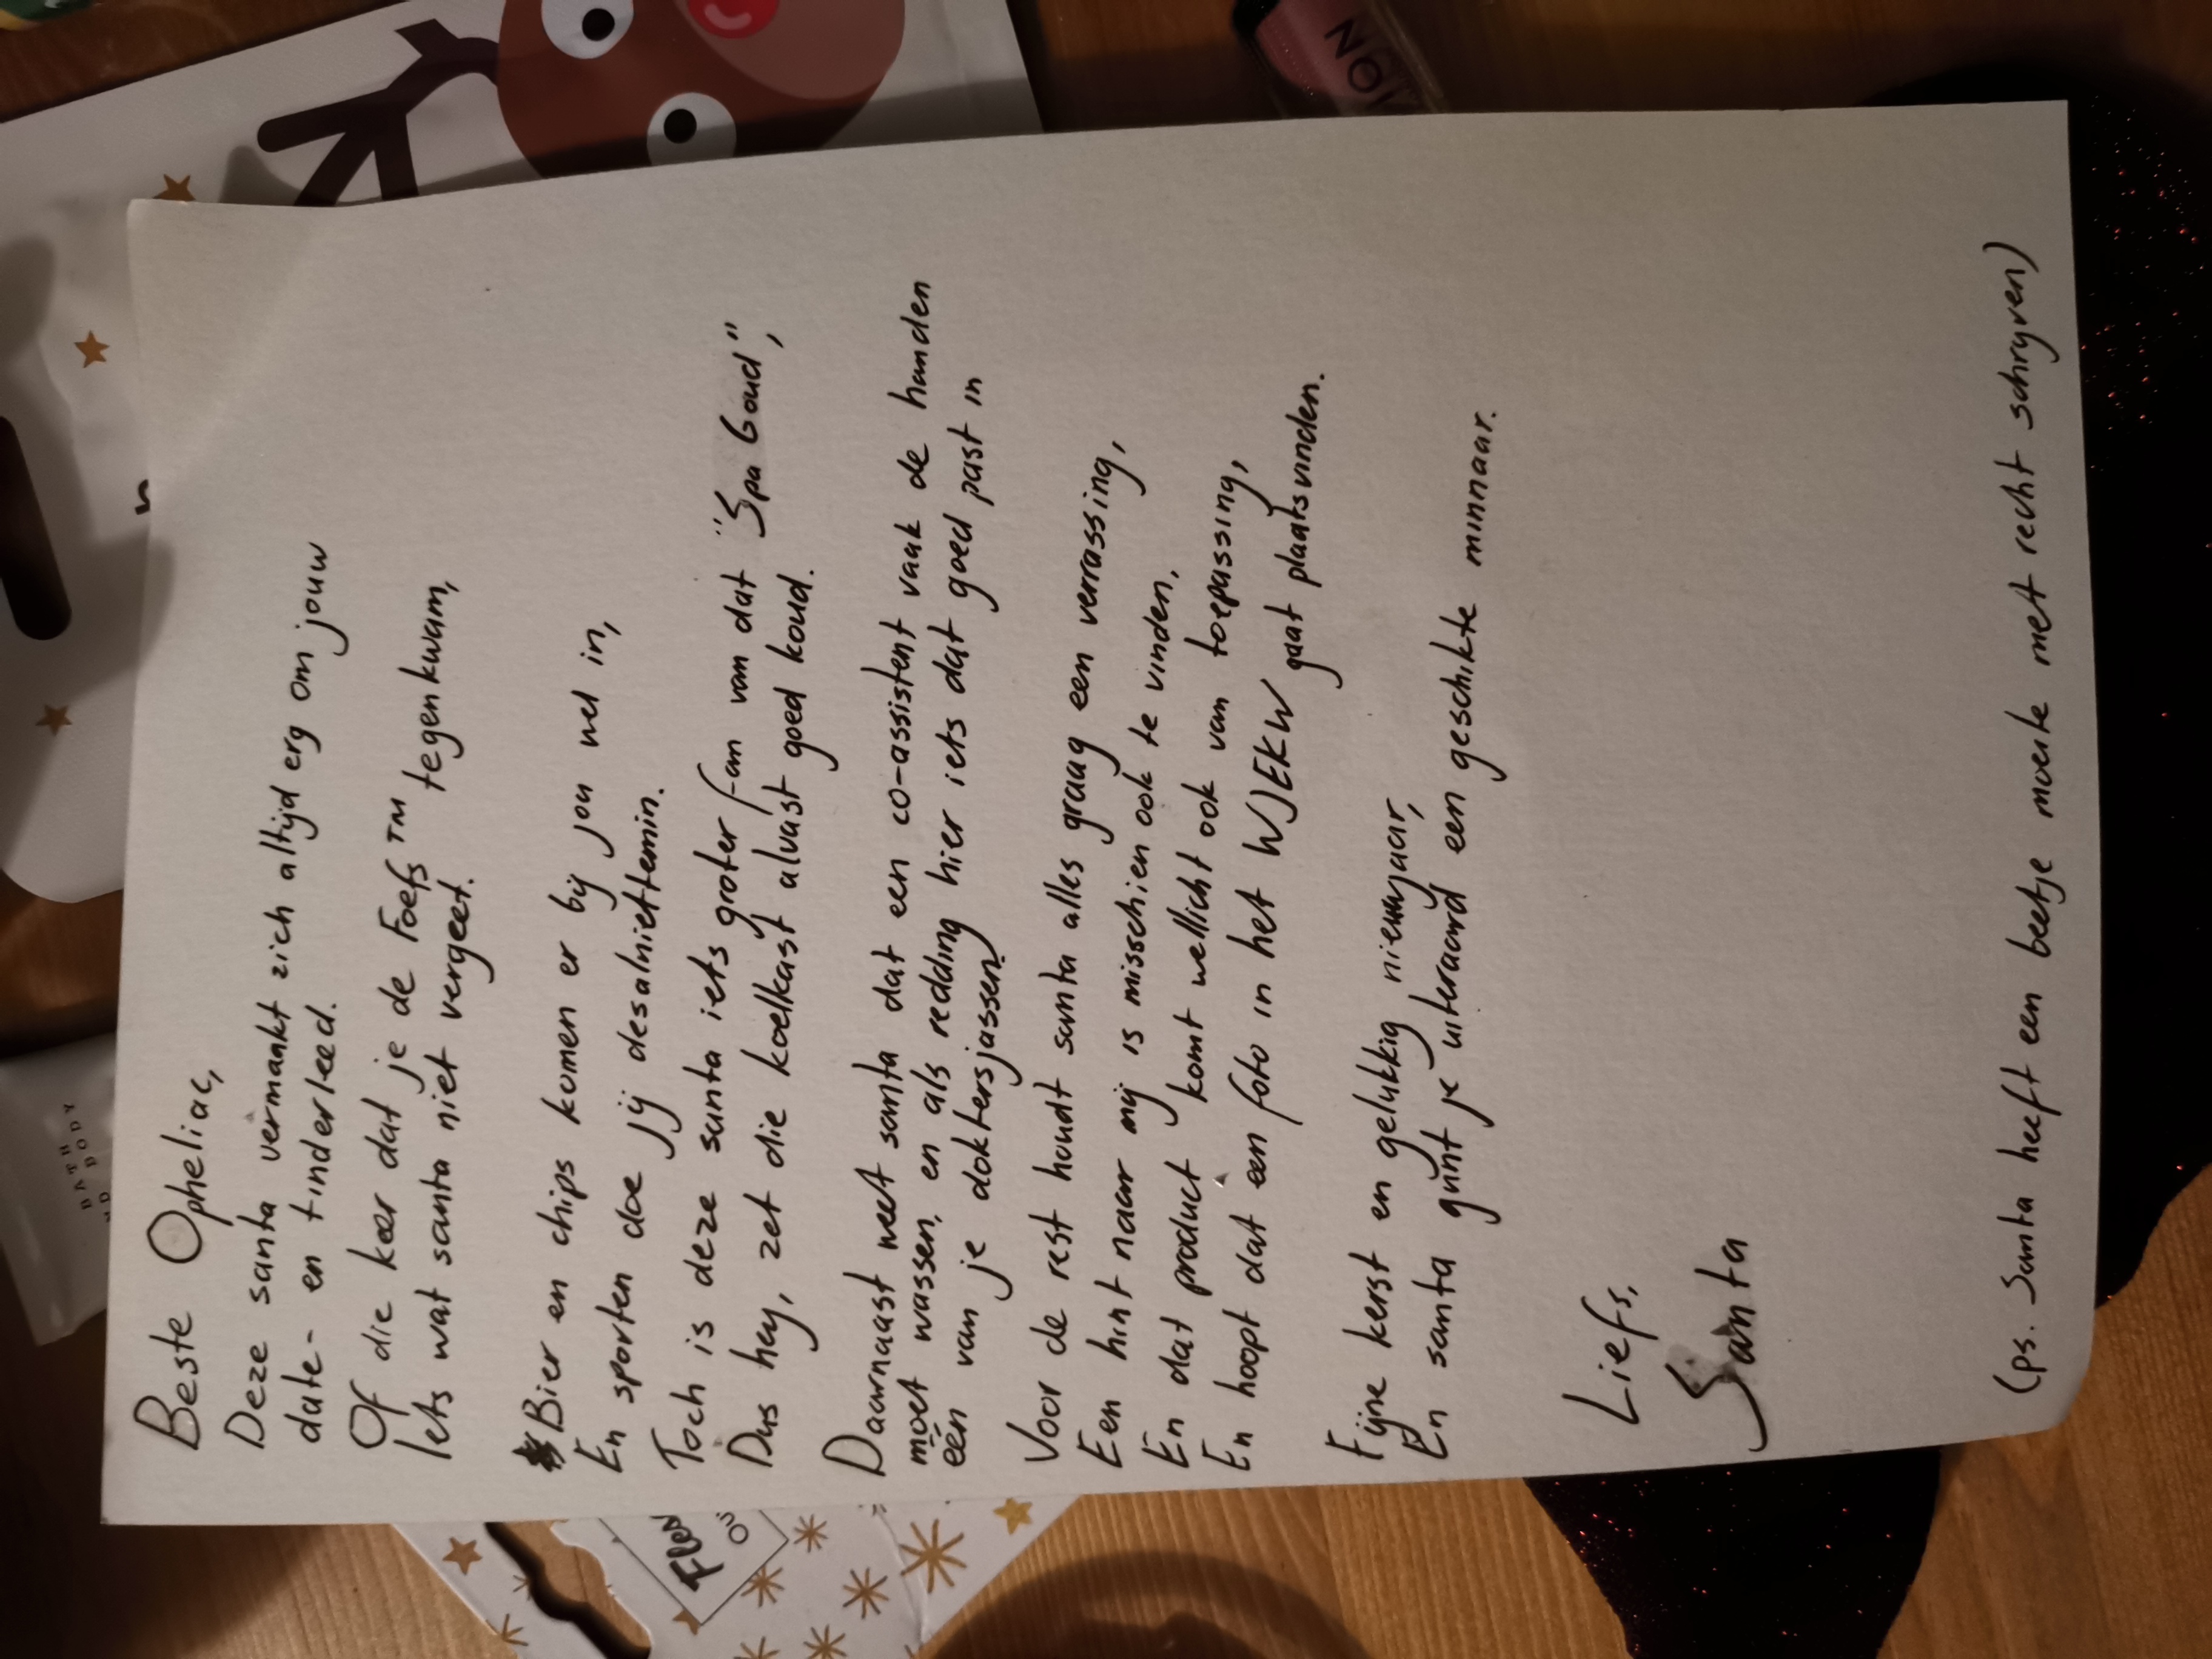 Beste Opheliac,
Deze santa vermaakt zich altijd erg om jouw
date- en tinderleed.
Of die keer dat je de Foefs™ tegenkwam,
Iets wat santa niet vergeet.
Bier en chips komen er bij jou wel in,
En sporten doe jij desalniettemin.
Toch is deze santa iets groter fan van dat "Spa Goud",
Dus hey, zet die koelkast alvast goed koud.
Daarnaast weet santa dat een co-assistent vaak de handen
moet wassen, en als redding hier iets dat goed past in
één van je doktersjassen.
Voor de rest houdt santa alles graag een verrassing,
Een hint naar mij is misschien ook te vinden,
En dat product komt wellicht ook van toepassing,
En hoopt dat een foto in het WJEKW gaat plaatsvinden.
Fijne kerst en gelukkig nieuwjaar,
En santa gunt je uiteraard een geschikte minnaar.
Liefs,
Santa
(ps. Santa heeft een beetje moeite met recht schrijven)
BATH
BODY
NOI